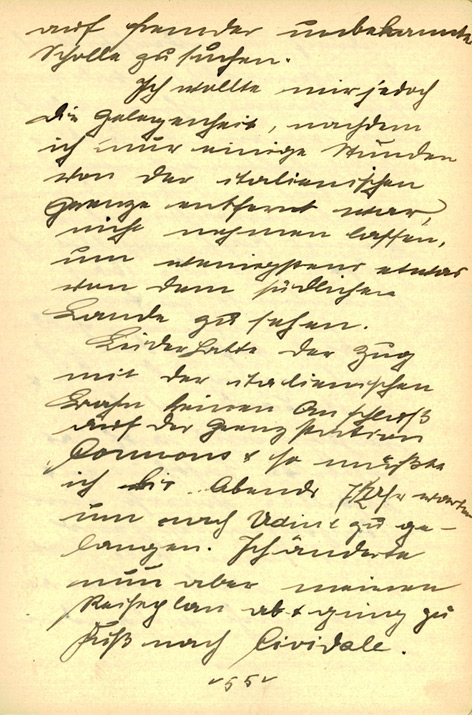 auf fremder unbekannte
Scholle zu suchen.
Ich wollte mir jedoch
die Gelegenheit, nachdem
ich nur einige Stunden
von der italienischen
Grenze entfernt war,
nicht nehmen lassen,
um wenigstens etwas
von dem südlichen
Lande zu sehen.
Leider hatte der Zug
mit der italienischen
Bahn keinen Anschluß
auf der Grenzstation
Cormons & so mußte
ich bis Abends 7 Uhr warten
um nach Udine zu ge-
langen. Ich änderte
nun aber meinen
Reiseplan ab & ging zu
Fuß nach Cividale.
55